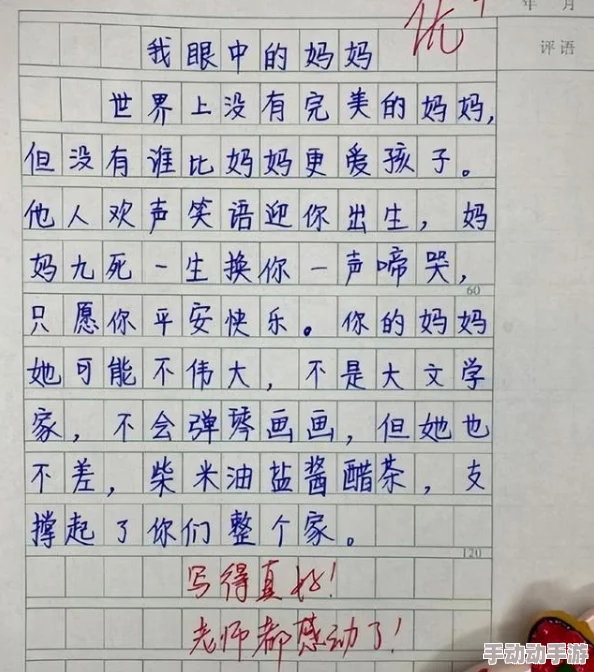 年 月
优
评语
我眼中的妈妈
世界上没有完美的妈妈,
但没有谁比妈妈更爱孩子。
他人欢声笑语迎你出生,妈
妈九死一生换你一声啼哭,
60
只愿你平安快乐。你的妈妈
她可能不伟大,不是大文学
家,不会弹琴画画,但她也
不差,柴米油盐酱醋茶,支
撑起了你们整个家。
120
写得真好!
老师都感动了!
手动动手游